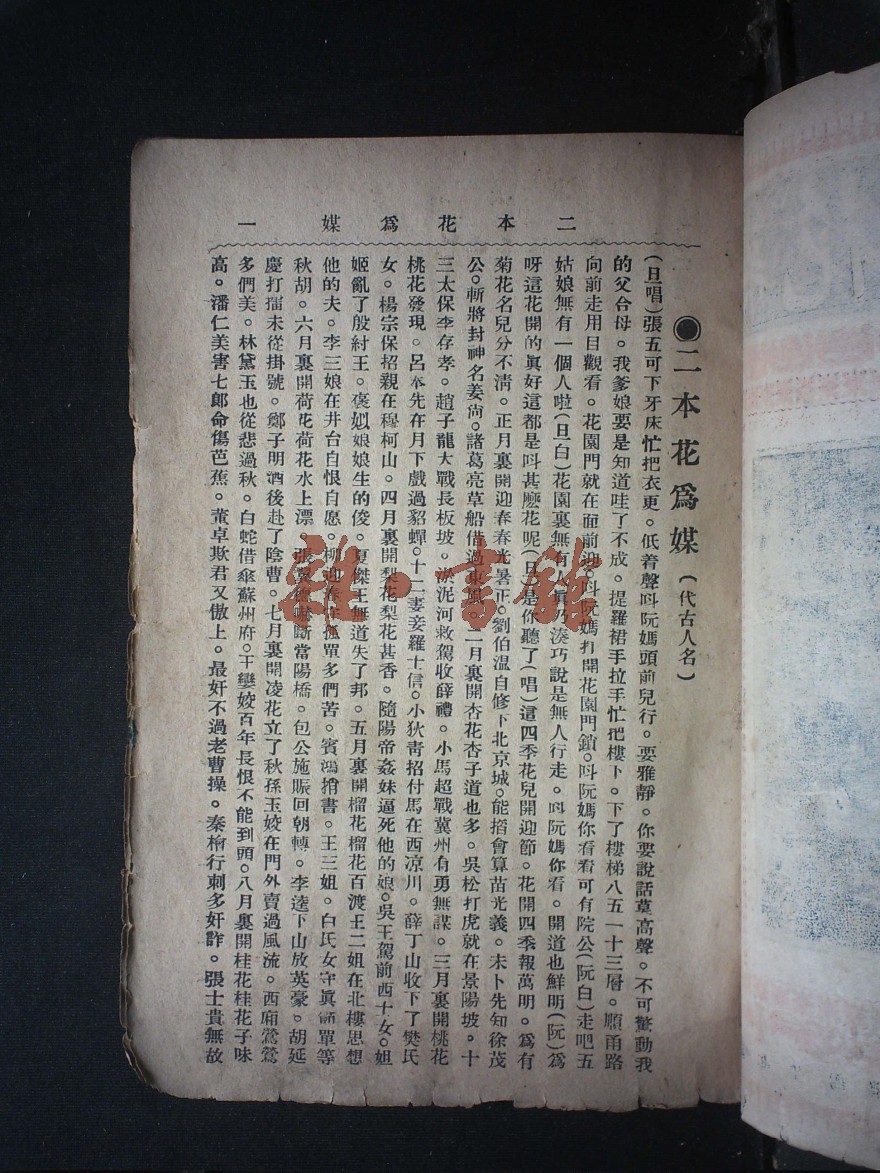 二本花爲媒 一
◉二本花爲媒(代古人名)
(旦唱)張五可下牙床忙把衣更。低着聲呌阮媽頭前兒行。要雅靜。你要說話莫高聲。不可驚動我
的父合母。我爹娘要是知道哇了不成。提羅裙手拉手忙把樓卜。下了樓梯八五一十三層。順甬路
向前走用目觀看。花園門就在面前迎。呌阮媽打開花園門鎖。呌阮媽你看看可有院公(阮白)走吧五
姑娘無有一個人啦(旦白)花園裏無有人眞乃湊巧說是無人行走。呌阮媽你看。開道也鮮明(阮)爲
呀這花開的眞好這都是呌甚麽花呢(旦)是你聽了(唱)這四季花兒開迎節。花開四季報萬明。爲有
菊花名兒分不清。正月裏開迎春春光暑正。劉伯溫自修卜北京城。能掐會算苗光義。未卜先知徐茂
公。斬將封神名姜尙。諸葛亮草船借過東風。二月裏開杏花杏子道也多。吳松打虎就在景陽坡。十
三太保李存孝。趙子龍大戰長板坡。淤泥河救駕收薛禮。小馬超戰冀州有勇無謀。三月裏開桃花
桃花發現。呂奉先在月下戲過貂蟬。十二妻妾羅士信。小狄靑招付馬在西涼川。薛丁山收下了樊氏
女。楊宗保招親在穆柯山。四月裏開梨花梨花甚香。隨陽帝姦妹逼死他的娘。吳王駕前西十女。妲
姬亂了殷紂王。褒姒娘娘生的俊。夏傑王無道失了邦。五月裏開榴花榴花百渡王二姐在北樓思想
他的夫。李三娘在井台自恨自愿。柳迎春守孤單多們苦。賓鴻捎書。王三姐。白氏女守眞節單等
秋胡。六月裏開荷花荷花水上漂。張翼德嚇斷當陽橋。包公施賑回朝轉。李逵下山放英豪。胡延
慶打擂未從掛號。鄭子明酒後赴了陰曹。七月裏開凌花立了秋孫玉姣在門外賣過風流。西廂鶯鶯
多們美。林黛玉也從悲過秋。白蛇借傘蘇州府。王孌姣百年長恨不能到頭。八月裏開桂花桂花子味
高。潘仁美害七郎命傷芭蕉。董卓欺君又傲上。最奸不過老曹操。秦檜行刺多奸詐。張士貴無故
雜·書館